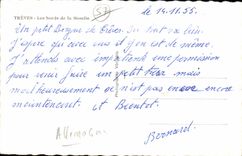 TRÈVES - Les bords de la Moselle
57
le 14.11.55.
Un petit bonjour de Trèves. Ici tout va bien.
J'espère qu'avec vous il en est de même.
J'attends avec impatience une permission
pour venir faire un petit tour mais
malheureusement ce n'est pas encore
maintenant. et Bientôt.
Bernard.
Allemagne